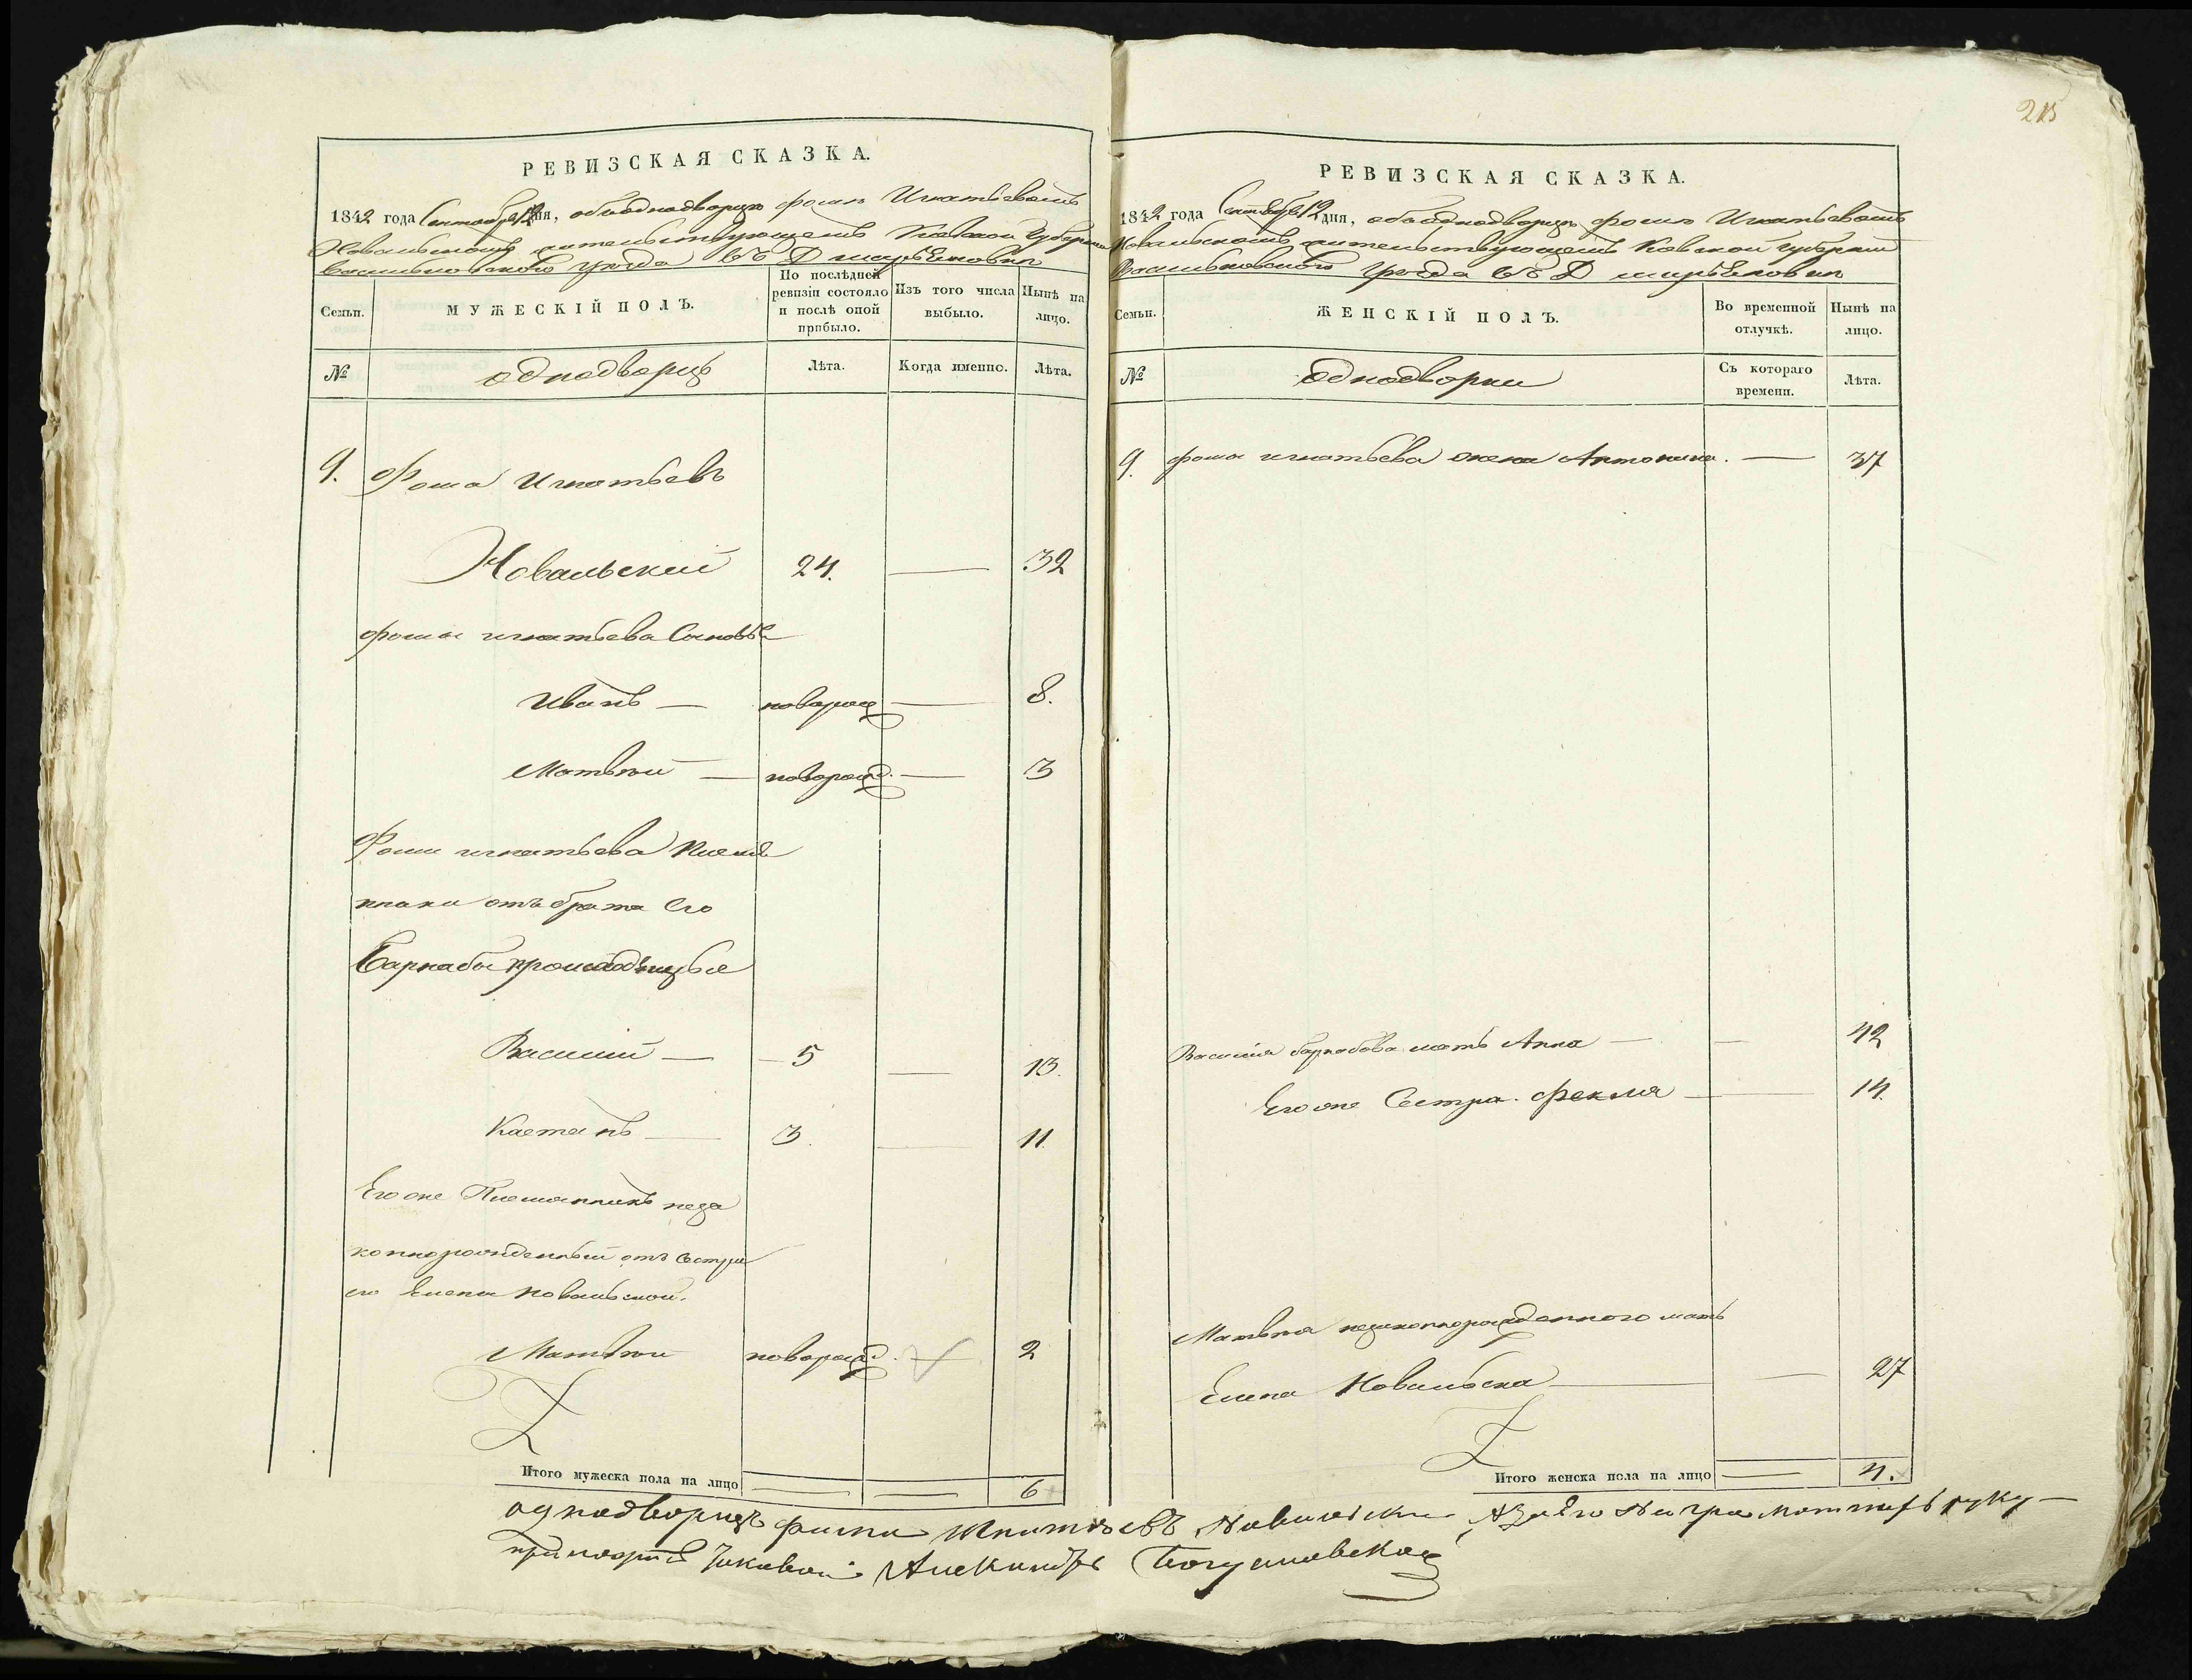 215
РЕВИЗСКАЯ СКАЗКА.
1842 года Сентября 12 дня, объ однодворцѣ Фомѣ Игнатьевѣ
Ковальскомъ жительствующемъ Кіевской Губерніи
Васильковского уѣзда въ Д
Семьи.
МУЖЕСКІЙ ПОЛЪ.
По послѣдней ревизіи состояло и послѣ оной прибыло.
Изъ того числа выбыло.
Нынѣ на лицо.
№
однодворцъ
Лѣта.
Когда именно.
Лѣта.
9. Фома Игнатьевъ
Ковальский 24. — 32
Фомы игнатьева Сыновья
Иванъ — новорож — 8.
Матвѣй — новорожд. — 3
Фомы игнатьева племя
нники отъ брата Его
Барнабы происходящые
Василий — 5 — 13.
Каетанъ — 3. — 11.
Его же Племянникъ неза
коннорожденный отъ сестры
его Елены Ковальской.
Матвѣй новорожд. — 2
Итого мужеска пола на лицо 6
РЕВИЗСКАЯ СКАЗКА.
1842 года Сентября 12 дня, объ однодворцѣ Фомѣ Игнатьевѣ
Ковальскомъ жительствующемъ Кіевской Губерніи
Васильковского уѣзда въ Д
Семьи.
ЖЕНСКІЙ ПОЛЪ.
Во временной отлучкѣ.
Нынѣ на лицо.
№
Однодворки
Съ котораго времени.
Лѣта.
9. Фомы игнатьева жена Антонина. — 37
Василія барнабова мать Анна — — 42
Его же Сестра. Фекля — 14.
Матвѣя незаконнорожденного мать
Елена Ковальска — — 27
Итого женска пола на лицо 4.
однодворецъ Фома Игнатьевъ Ковальски Азаего неграмотность руку
Александръ